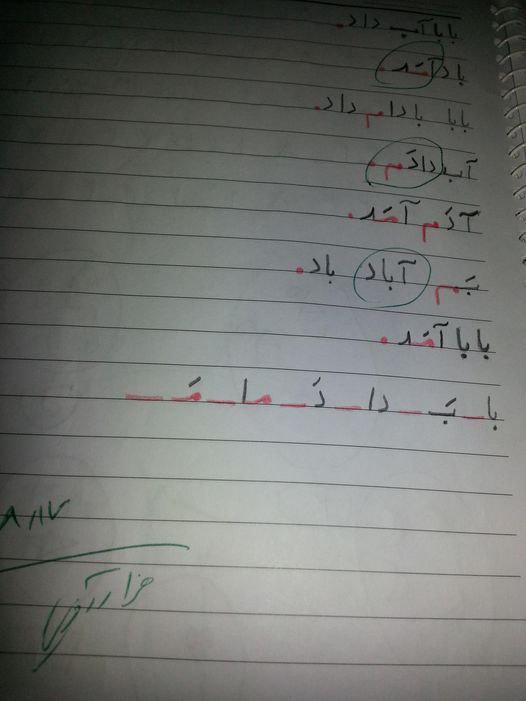 بابا آب داد.
باد آمَد.
بابا بادام داد.
آب دادَم.
آدَم آمَد.
بَم آباد باد.
بابا آمَد.
با ــ بَـ ــ دا ــ دَ ــ ما ــ مَـ ــ
هزار آفرین